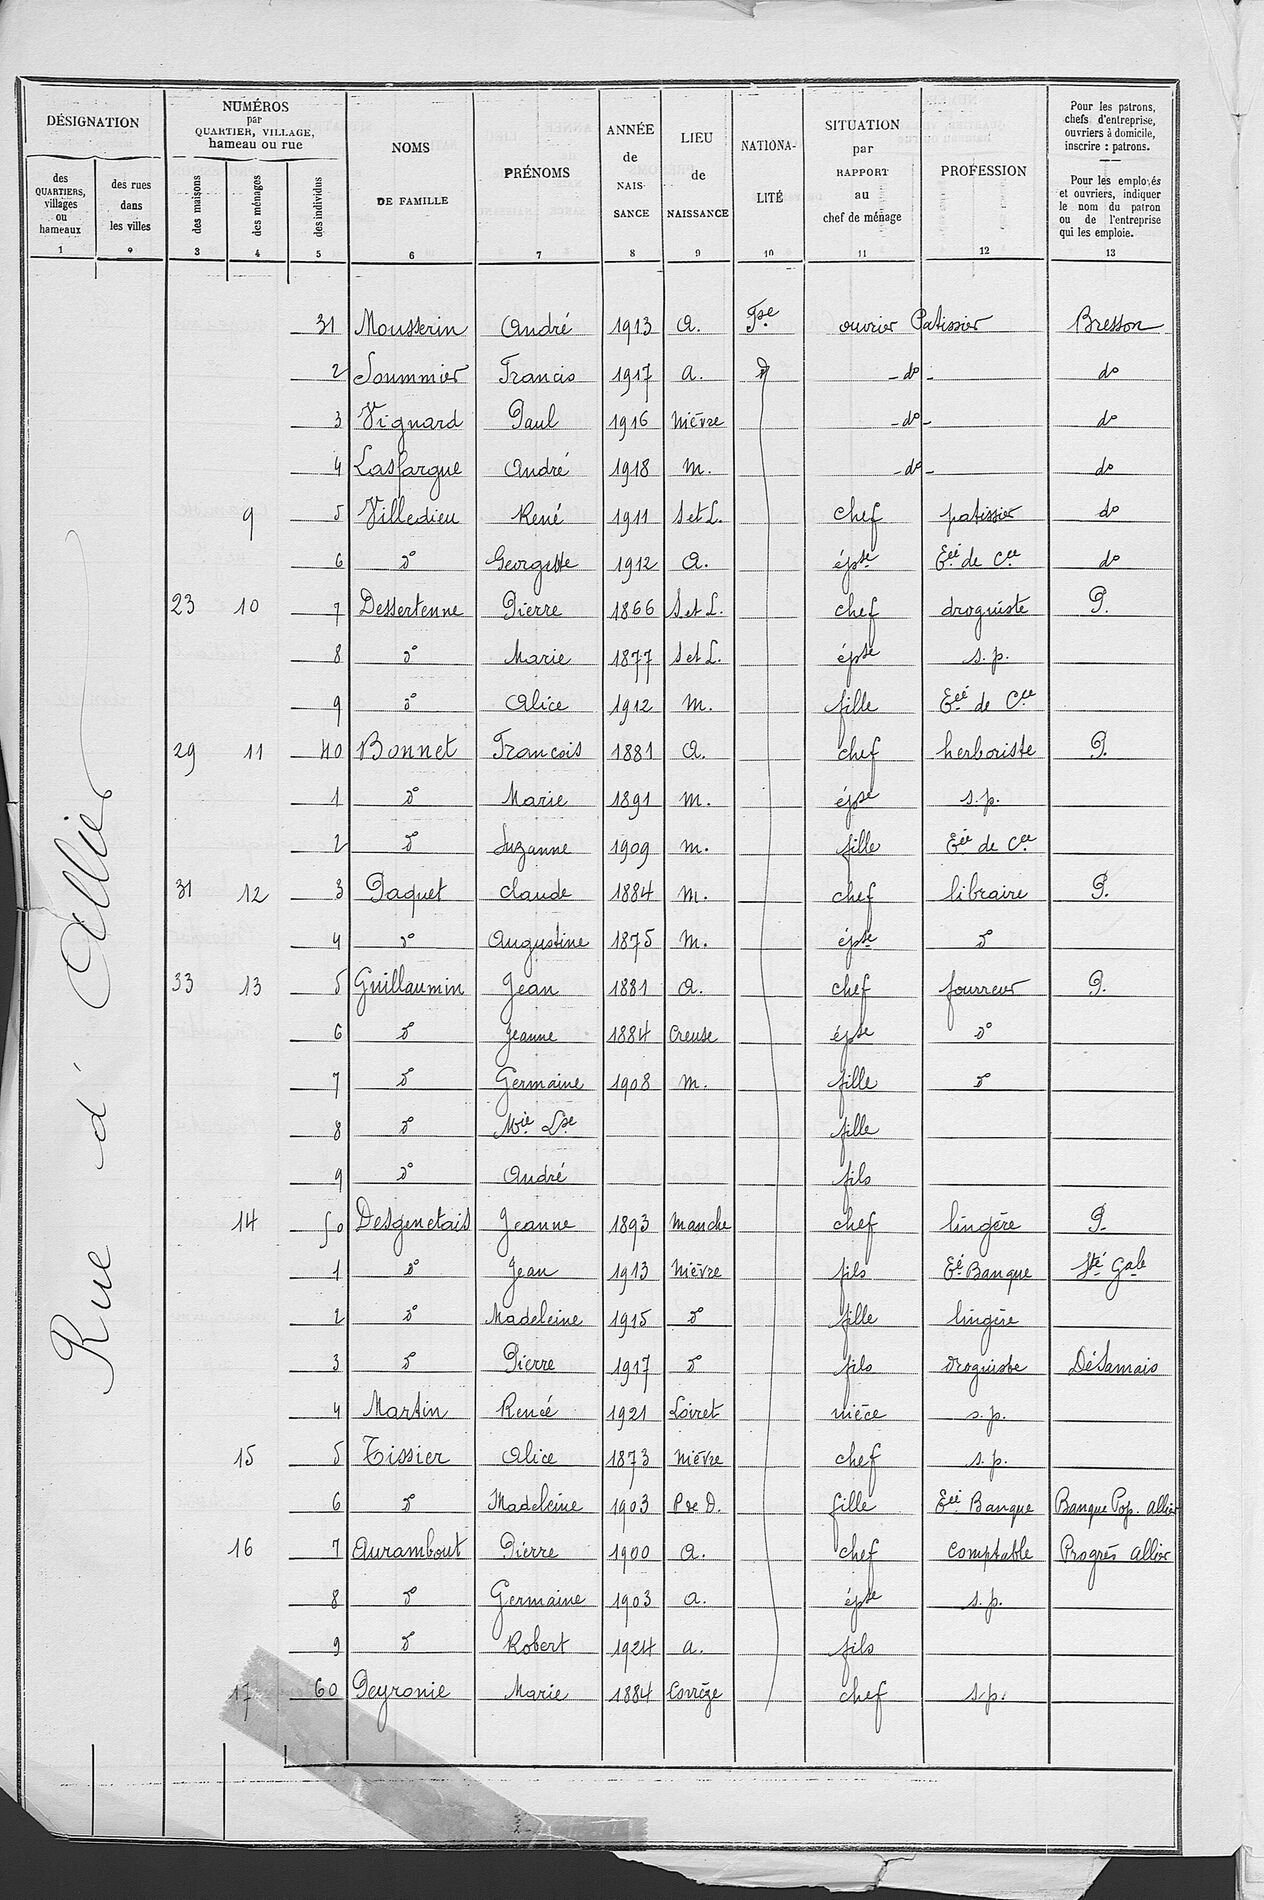 DÉSIGNATION
des QUARTIERS, villages ou hameaux
1
des rues dans les villes
2
NUMÉROS par QUARTIER, VILLAGE, hameau ou rue
des maisons
3
des ménages
4
des individus
5
NOMS DE FAMILLE
6
PRÉNOMS
7
ANNÉE de NAISSANCE
8
LIEU de NAISSANCE
9
NATIONALITÉ
10
SITUATION par RAPPORT au chef de ménage
11
PROFESSION
12
Pour les patrons, chefs d'entreprise, ouvriers à domicile, inscrire : patrons.
Pour les employés et ouvriers, indiquer le nom du patron ou de l'entreprise qui les emploie.
13
Rue d'Allier
31 Mousserin André 1913 A. Fse ouvrier Patissier Bresson
2 Soummier Francis 1917 A. d° -d°- d°
3 Vignard Paul 1916 Nièvre -d°- d°
4 Lasfargue André 1918 M. -d°- d°
9 5 Villedieu René 1911 S et L. chef patissier d°
6 d° Georgette 1912 A. épse Eée de Cce d°
23 10 7 Dessertenne Pierre 1866 S et L. chef droguiste P.
8 d° Marie 1877 S et L. épse s.p.
9 d° Alice 1912 M. fille Eée de Cce
29 11 40 Bonnet François 1881 A. chef herboriste P.
1 d° Marie 1891 M. épse s.p.
2 d° Suzanne 1909 M. fille Eée de Cce
31 12 3 Paquet Claude 1884 M. chef libraire P.
4 d° Augustine 1875 M. épse d°
33 13 5 Guillaumin Jean 1881 A. chef fourreur P.
6 d° Jeanne 1884 Creuse épse d°
7 d° Germaine 1908 M. fille d°
8 d° Mie Lse fille
9 d° André fils
14 50 Desgenetais Jeanne 1893 Manche chef lingère P.
1 d° Jean 1913 Nièvre fils Eé Banque Sté Gale
2 d° Madeleine 1915 d° fille lingère
3 d° Pierre 1917 d° fils droguiste Désamais
4 Martin Renée 1921 Loiret nièce s.p.
15 5 Tissier Alice 1873 Nièvre chef s.p.
6 d° Madeleine 1903 P de D. fille Eée Banque Banque Pop. Allier
16 7 Aurambout Pierre 1900 A. chef comptable Progrès Allier
8 d° Germaine 1903 A. épse s.p.
9 d° Robert 1924 A. fils
17 60 Peyronie Marie 1884 Corrèze chef s.p.